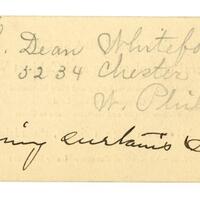 Dean Whitefo
5234 Chester
W. Phil
ing curtains